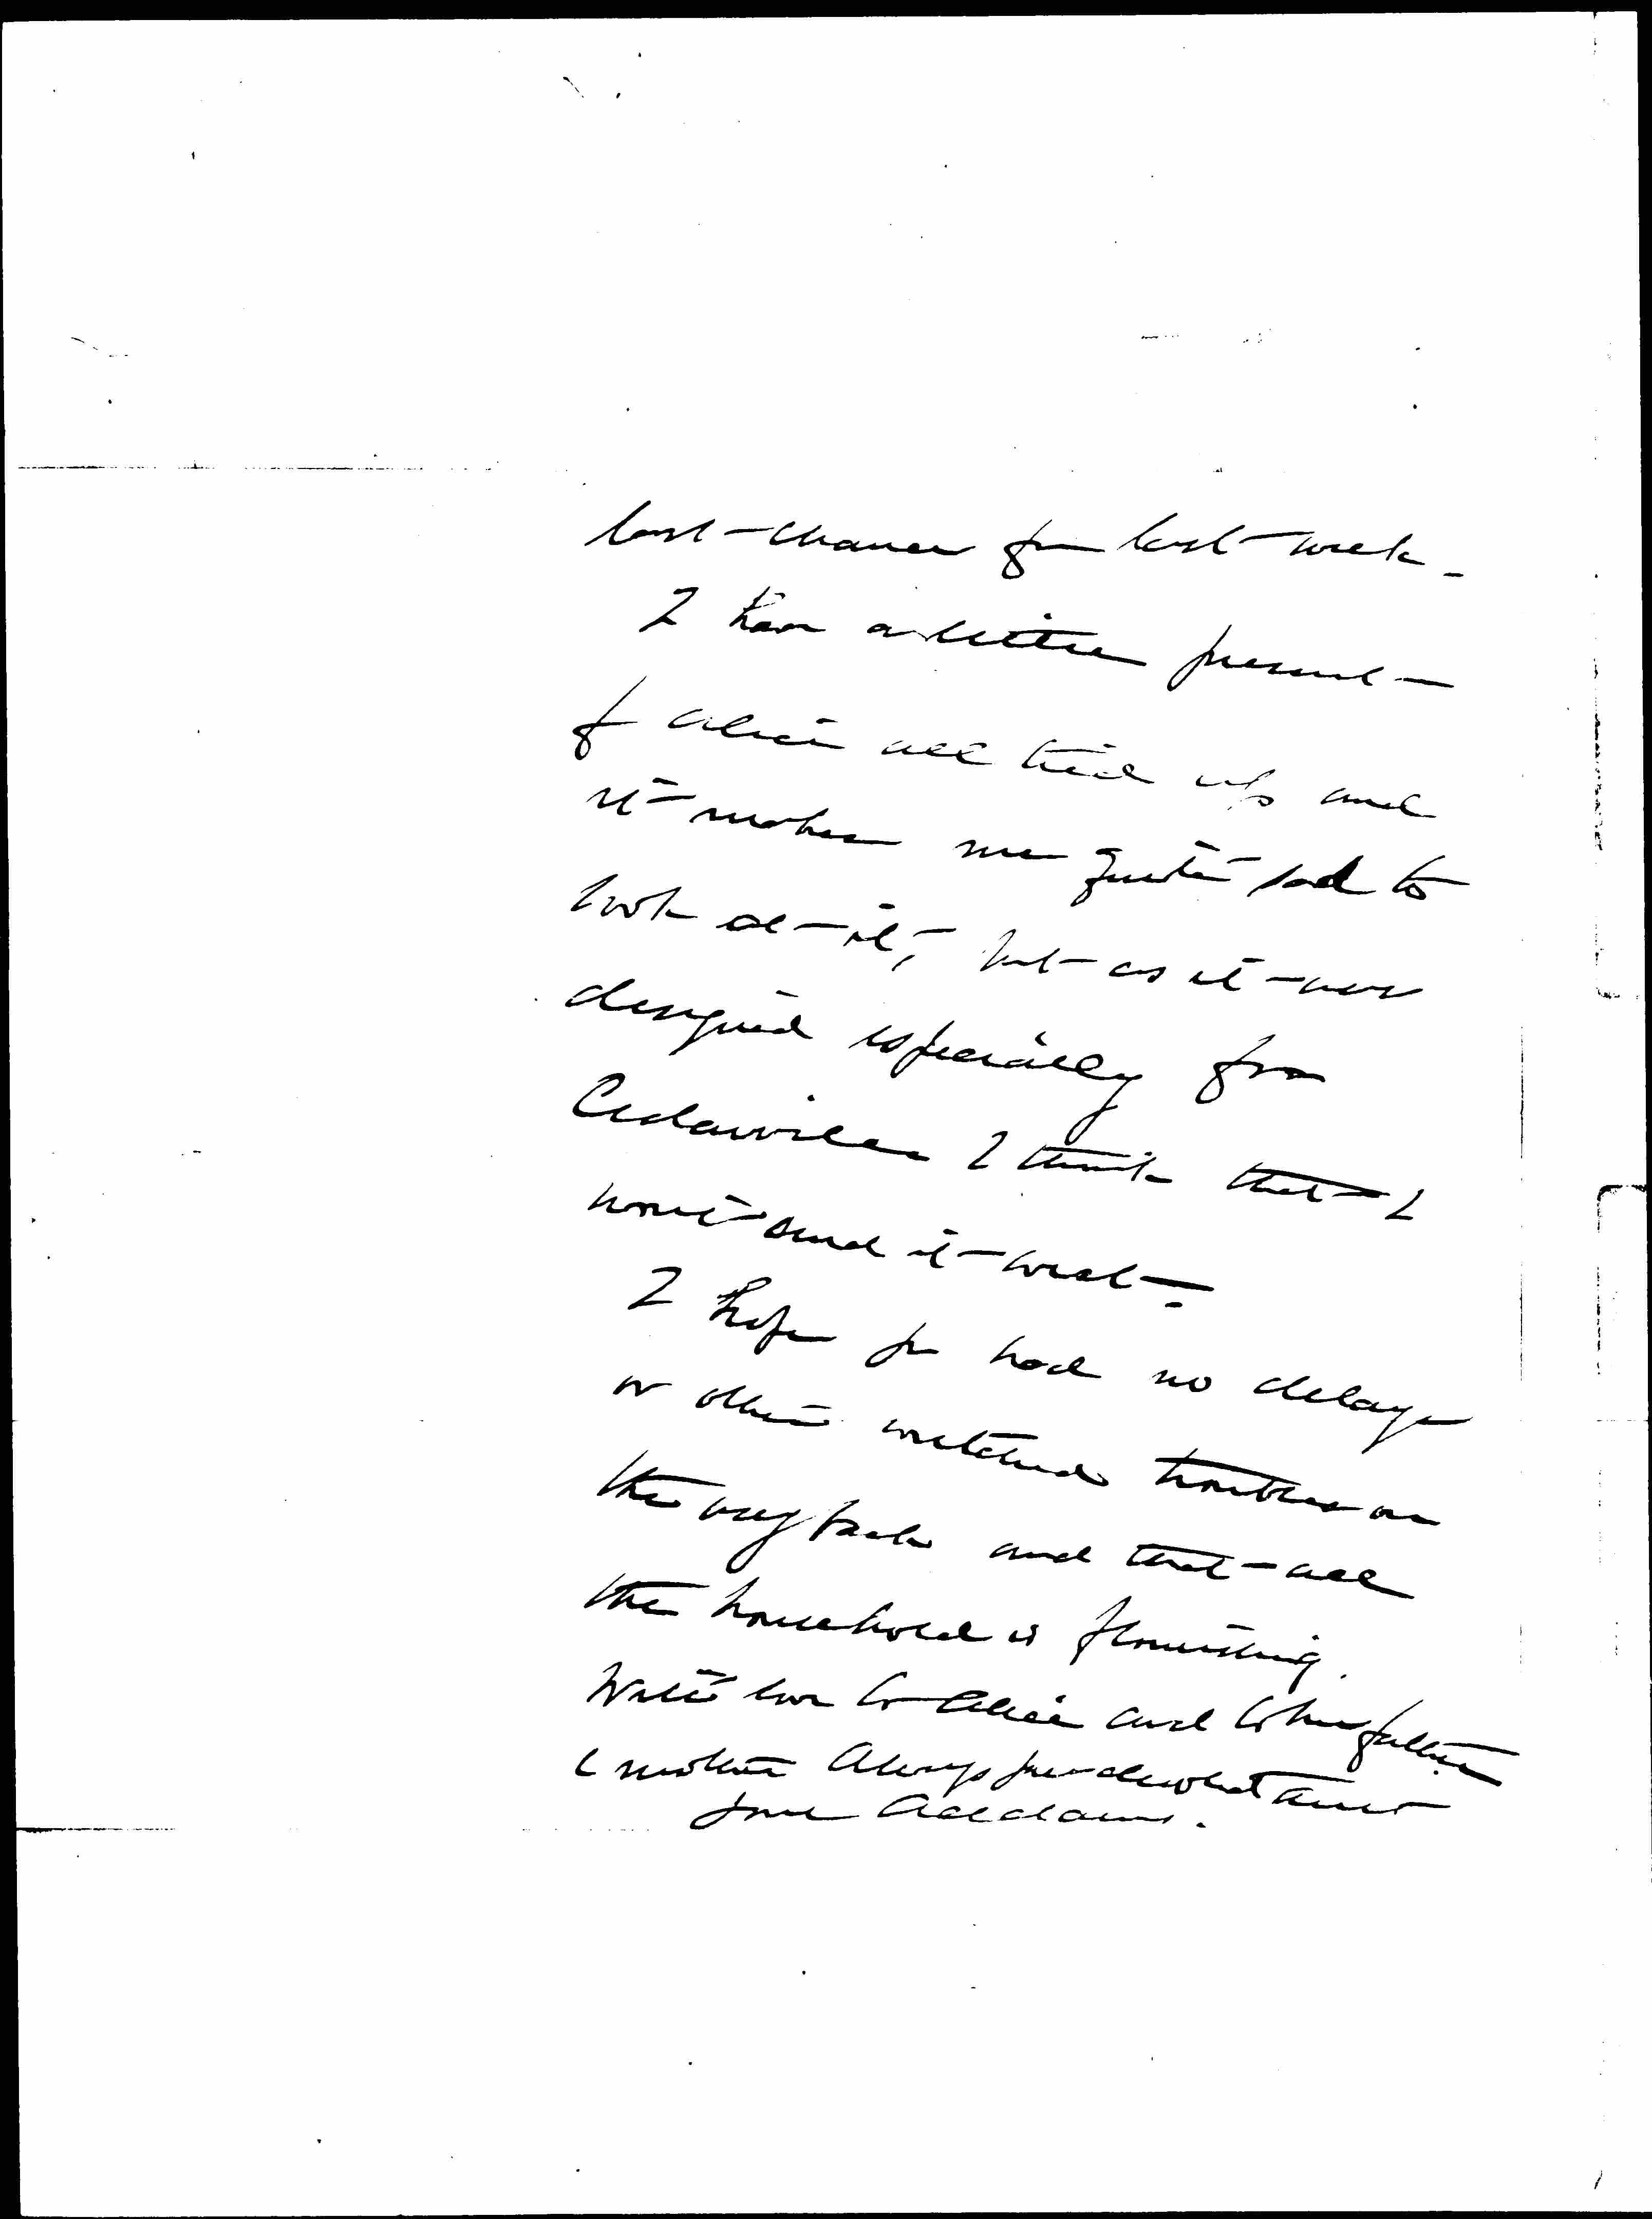 last chance for last week.
I have a little present
for Alice all tied up and
it makes me quite sad to
look at it, but as it was
designed especially for
Cedarville I think that I
won't send it west.
I hope you had no delays
or other wretched troubles on
the way back and that all
the household is flourishing.
With love to Alice and to her father
& mother Always your devoted Aunt
Jane Addams.